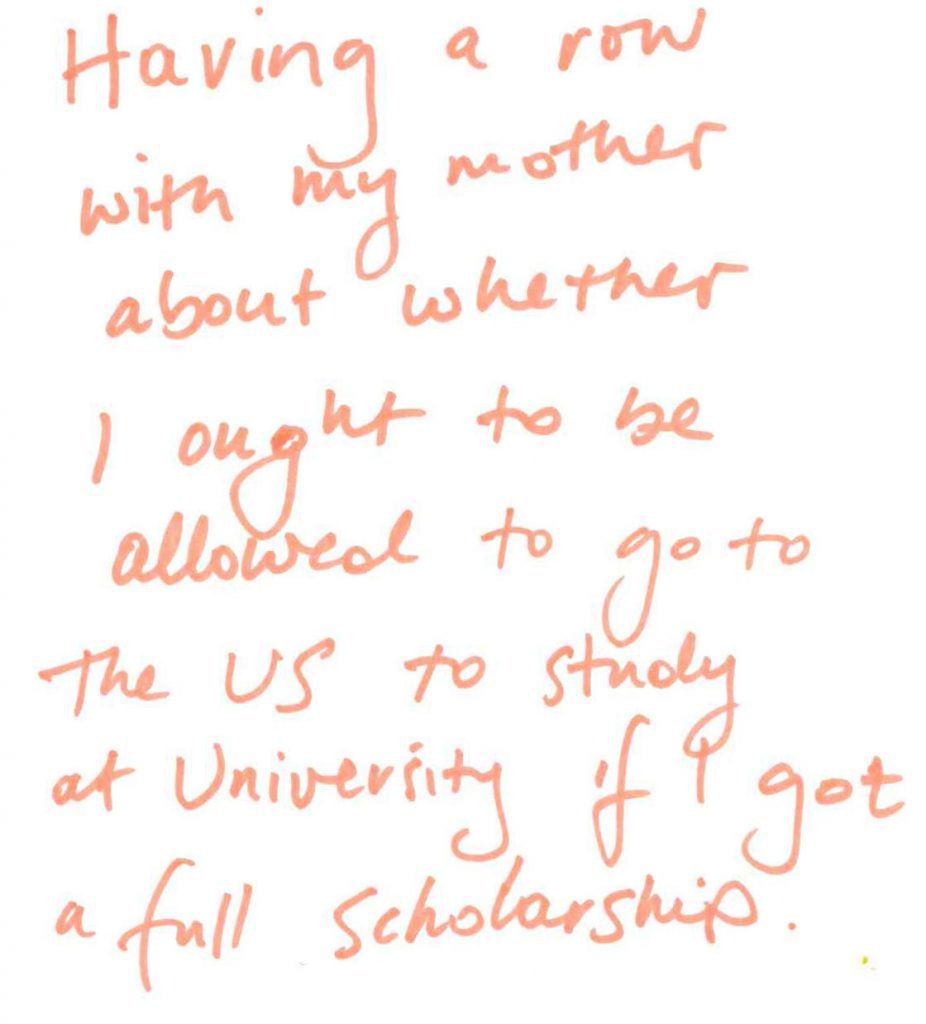 Having a row
with my mother
about whether
I ought to be
allowed to go to
The US to study
at University if I got
a full scholarship.